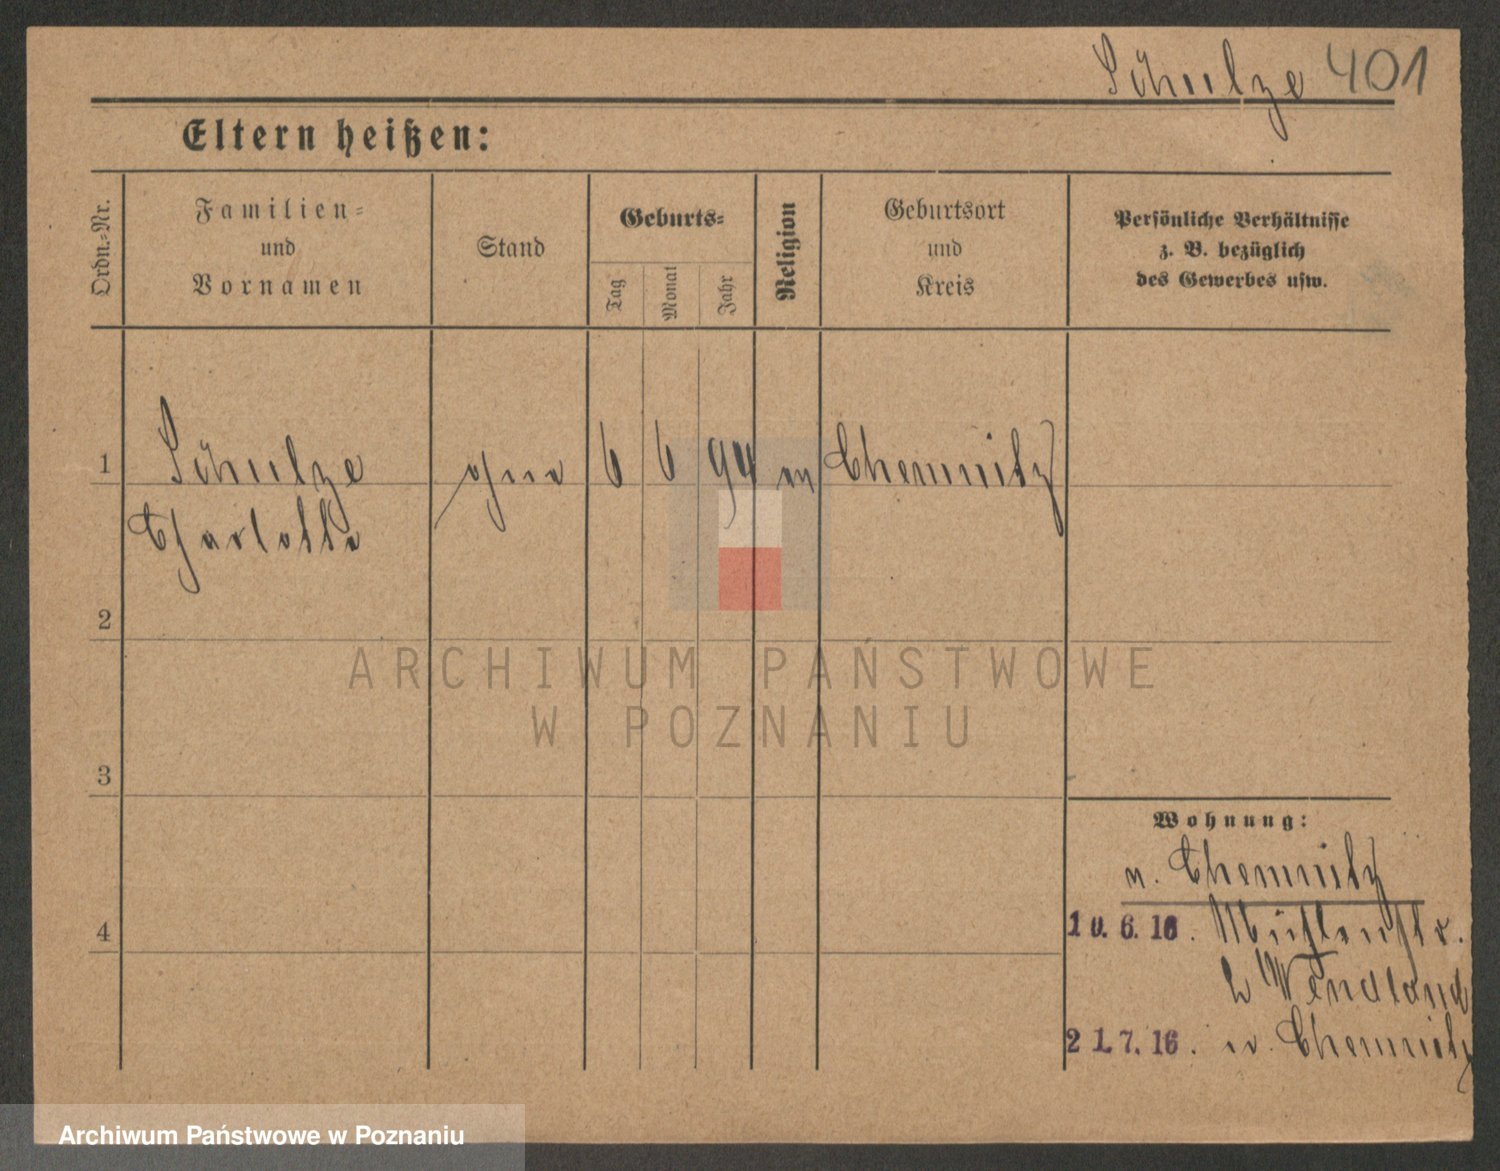 Schulze 401
Eltern heißen:
Ordn.-Nr.
Familien-
und
Vornamen
Stand
Geburts-
Tag
Monat
Jahr
Religion
Geburtsort
und
Kreis
Persönliche Verhältnisse
z. B. bezüglich
des Gewerbes usw.
1 Schulze ohne 6 6 94 Chemnitz
Charlotte
2
3
4
ARCHIWUM PAŃSTWOWE
W POZNANIU
Wohnung:
v. Chemnitz
10.6.16. Mühlenstr.
b Wendland
21.7.16. n. Chemnitz
Archiwum Państwowe w Poznaniu